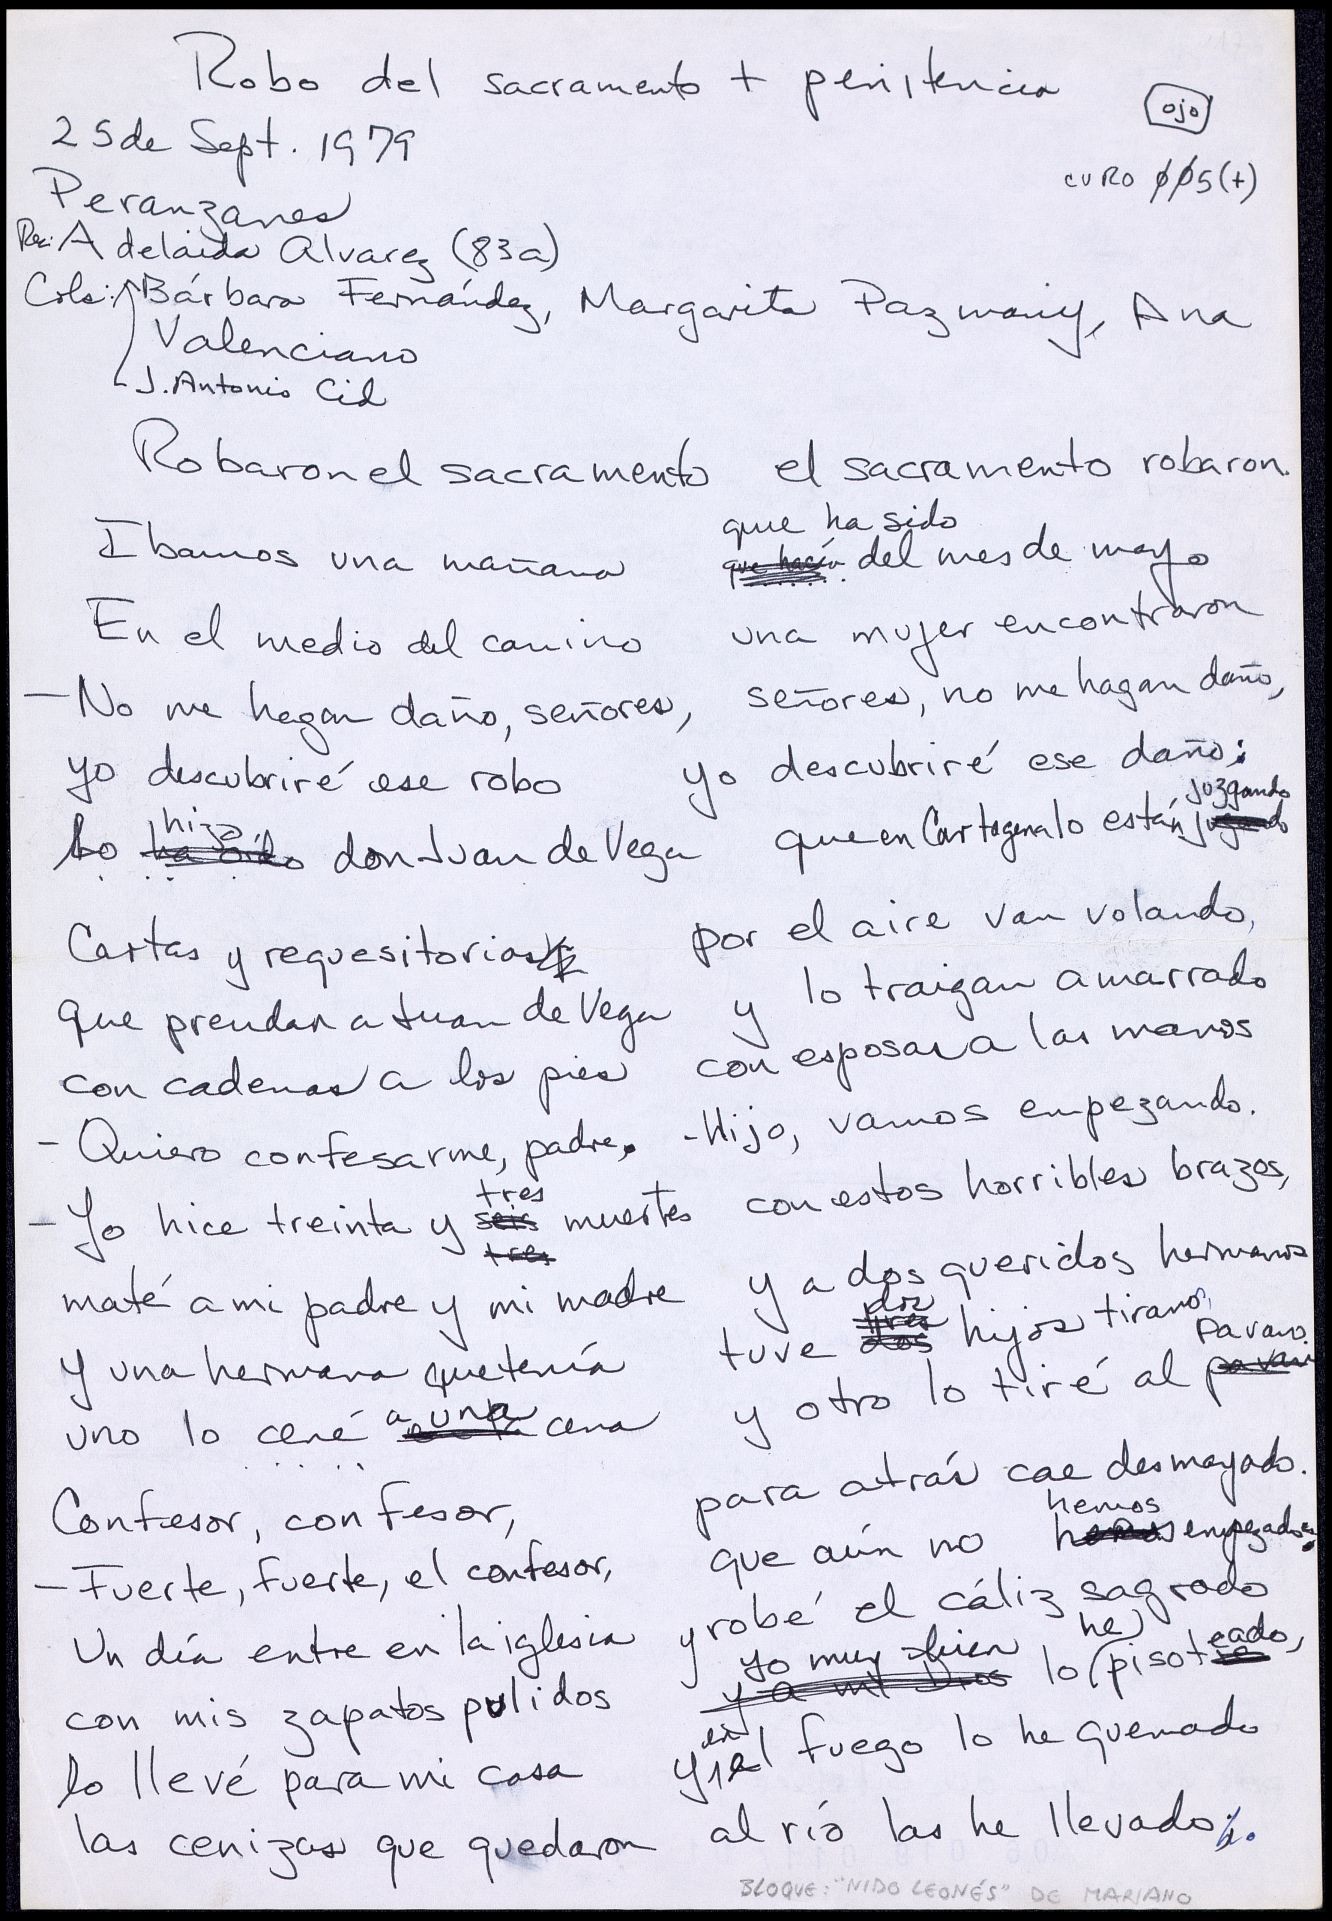 Robo del sacramento + penitencia
ojo
25 de Sept. 1979
CURO ØØ5(+)
Peranzanes
Rec: Adelaida Alvarez (83a)
Cols: Bárbara Fernández, Margarita Pazmany, Ana
Valenciano
J. Antonio Cid
Robaron el sacramento el sacramento robaron.
que ha sido
Ibamos una mañana que hacía del mes de mayo
En el medio del camino una mujer encontraron
- No me hagan daño, señores, señores, no me hagan daño,
yo descubriré ese robo yo descubriré ese daño;
hizo juzgando
Lo ha oído don Juan de Vega que en Cartagena lo están jugando
Cartas y requesitorias por el aire van volando,
que prendan a Juan de Vega y lo traigan amarrado
con cadenas a los pies con esposas a las manos
- Quiero confesarme, padre. - Hijo, vamos empezando.
tres
- Yo hice treinta y seis muertes con estos horribles brazos,
tres
maté a mi padre y mi madre y a dos queridos hermanos
dos
tres
y una hermana que tenía tuve dos hijos tiranos,
a una pavano.
uno lo cené cena y otro lo tiré al pavano
Confesor, confesor, para atrás cae desmayado.
hemos
- Fuerte, fuerte, el confesor, que aún no hemos empezado;
Un día entre en la iglesia y robé el cáliz sagrado
yo muy bien he eado,
con mis zapatos pulidos y a mi Dios lo pisoté
en
lo llevé para mi casa y el fuego lo he quemado
las cenizas que quedaron al río las he llevado.
BLOQUE: "NIDO LEONÉS" DE MARIANO